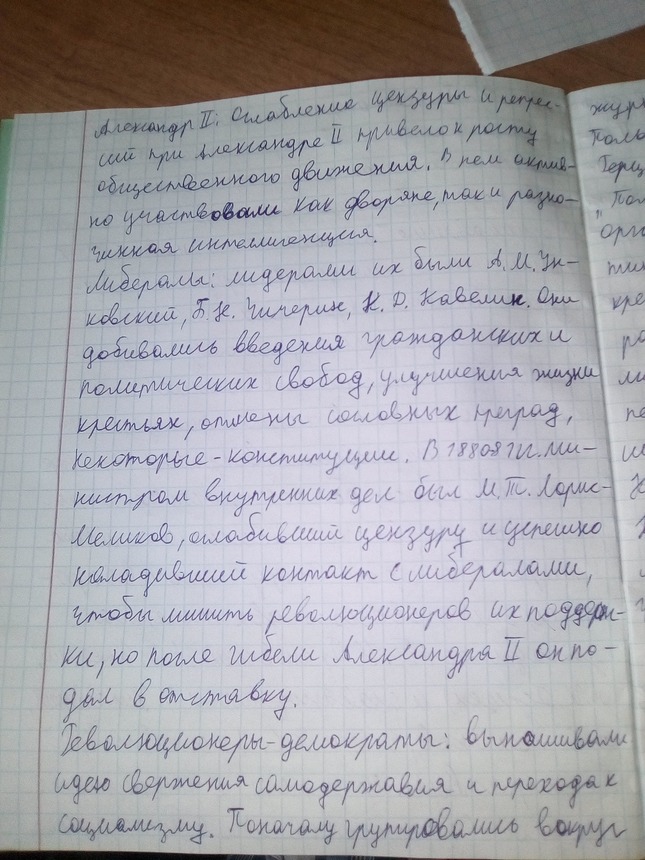 Александр II: Ослабление цензуры и репрес-
сий при Александре II привело к росту
общественного движения. В нем актив-
но участвовали как дворяне, так и разно-
чинная интеллигенция.
Либералы: лидерами их были А.М. Ун-
ковский, Б.Н. Чичерин, К.Д. Кавелин. Они
добивались введения гражданских и
политических свобод, улучшения жизни
крестьян, отмены сословных преград,
некоторые - конституции. В 188081гг. ми-
нистром внутренних дел был М.Т. Лорис-
Меликов, ослабивший цензуру и успешно
наладивший контакт с либералами,
чтобы лишить революционеров их поддерж-
ки, но после гибели Александра II он по-
дал в отставку.
Революционеры-демократы: вынашивали
идею свержения самодержавия и перехода к
социализму. Поначалу групировались вокруг
журн
Поль
Герц
"Пол
орга
тик
кре
ра
ли
пе